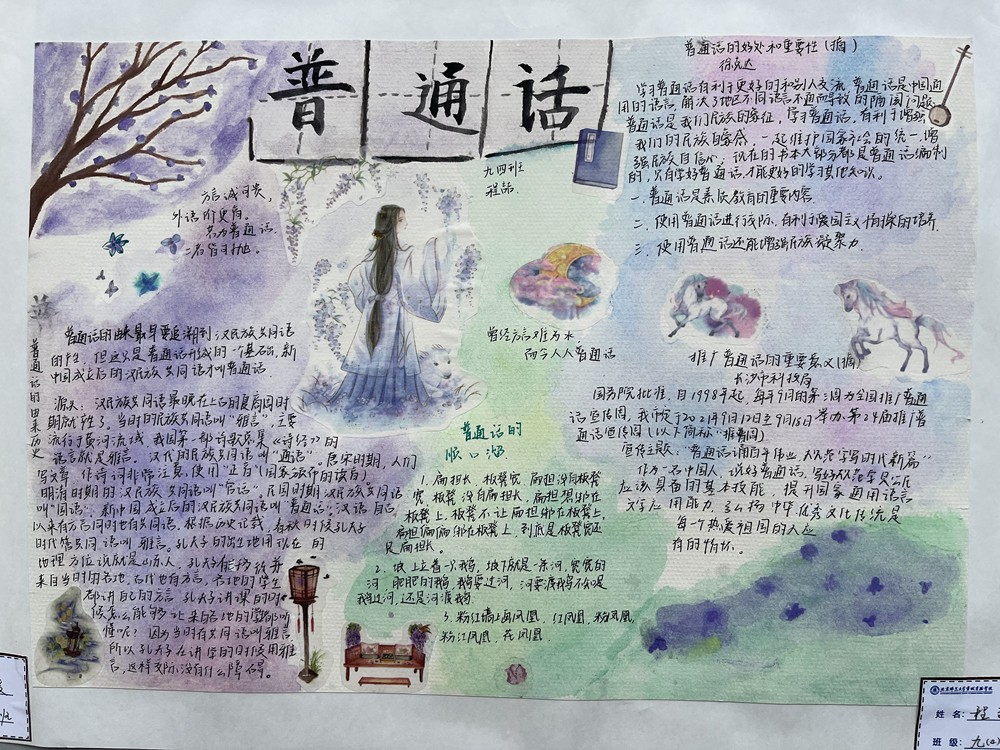 普通话
九四班
方言诚可贵,
外语价更高。
若为普通话
二者皆可抛。
普通话的由来历史
普通话的由来最早要追溯到汉民族共同语
的产生,但这只是普通话形成的一个基础,新
中国成立后的汉民族共同语才叫普通话.
源头:汉民族共同语最晚在上古的夏商周时
期就产生了。当时的民族共同语叫“雅言”,主要
流行于黄河流域,我国第一部诗歌总集《诗经》的
语言就是雅言。汉代的民族共同语叫“通语”,唐宋时期,人们
写文章、作诗词非常注意,使用“正音”(国家颁布的读音)
明清时期的汉民族共同语叫“官话”。民国时期汉民族共同语
叫“国语”。新中国成立后的汉民族共同语叫“普通话”,汉语自古
以来有方言同时也有共同语,根据历史记载,春秋时候孔夫子
时代管共同语叫雅言。孔夫子的出生地用现在的
地理方位说就是山东人,孔夫子
来自当时的各地,古代也有方言,各地的学生
都讲自己的方言,孔夫子讲课的时
候怎么能够让来自各地的学生都听
懂呢?因为当时有共同语叫雅言,
所以孔夫子在讲学的时候用雅
言,这样交际没有什么障碍。
曾经方言难为水
而今人人普通话
普通话的
顺口溜
1.扁担长,板凳宽,扁担没有板凳
宽,板凳没有扁担长,扁担想绑在
板凳上,板凳不让扁担绑在板凳上,
扁担偏偏绑在板凳上,到底是板凳宽还
是扁担长。
2.坡上立着一只鹅,坡下就是一条河,宽宽的
河,肥肥的鹅,鹅要过河,河要渡鹅不知是
鹅过河,还是河渡鹅.
3.粉红墙上画凤凰,红凤凰,粉凤凰,
粉红凤凰,花凤凰.
普通话的好处和重要性(摘)
学习普通话有利于更好的和别人交流,普通话是中国通
用的语言,解决了地区不同语言不通而导致的隔阂问题
普通话是我们民族的象征,学习普通话,有利于增强
我们的民族自豪感,一起维护国家社会的统一,增
强民族自信心,现在的书本大部分都是普通话编制
的,只有学好普通话,才能更好的学习其他知识。
一.普通话是素质教育的重要内容.
二、使用普通话进行交际,有利于爱国主义情操的培养
三、使用普通话还能增强民族凝聚力.
推广普通话的重要意义(摘)
长沙市科技局
国务院批准,自1998年起,每年9月的第三周为全国推广普通
话宣传周,我市定于2021年9月12日至9月18日举办第24届推广普
通话宣传周(以下简称“推普周”)
宣传主题:“普通话诵百年伟业,规范字写时代新篇”
作为一名中国人,说好普通话,写好规范字是
应该具备的基本技能,提升国家通用语言
文字应用能力,弘扬中华优秀文化传统是
每一个热爱祖国的人应
有的情怀.
姓名:程
班级:九(4)